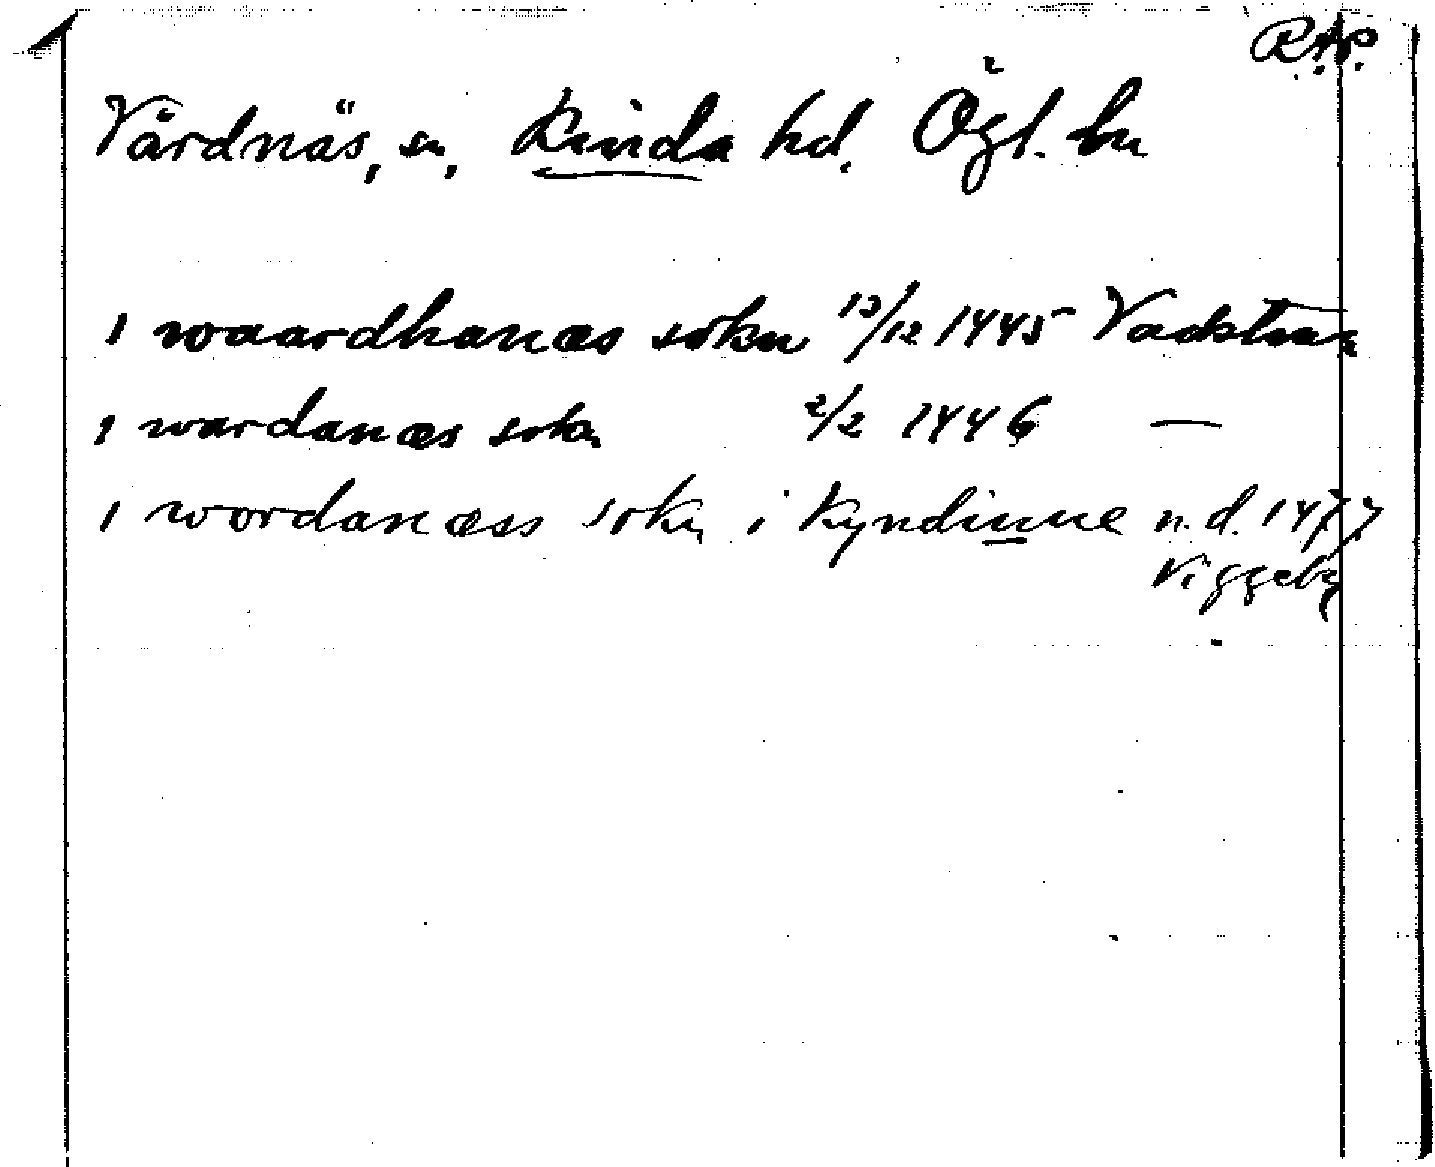 R.A.P.
Vårdnäs, sn, Kinda hd. Ögl. ln
i waardhanæs sokn 13/12 1445 Vadstena
i wardanæs sokn 2/2 1446 —
i wordanæss sokn i Kyndinne n.d. 1477
Viggeby